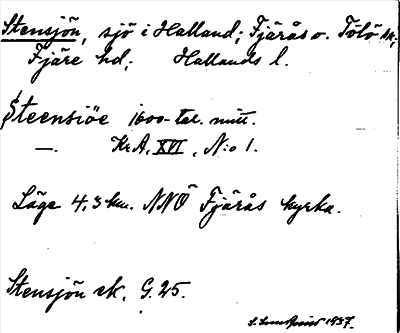 Stensjön, sjö i Halland; Fjärås o. Tölö sk;
Fjäre hd; Hallands l.
Steensiöe 1600-tal. mitt.
—. Kr.A, XVI, N:o 1.
Läge 4,3 km. NNÖ Fjärås kyrka.
Stensjön ek. G. 25.
1937.